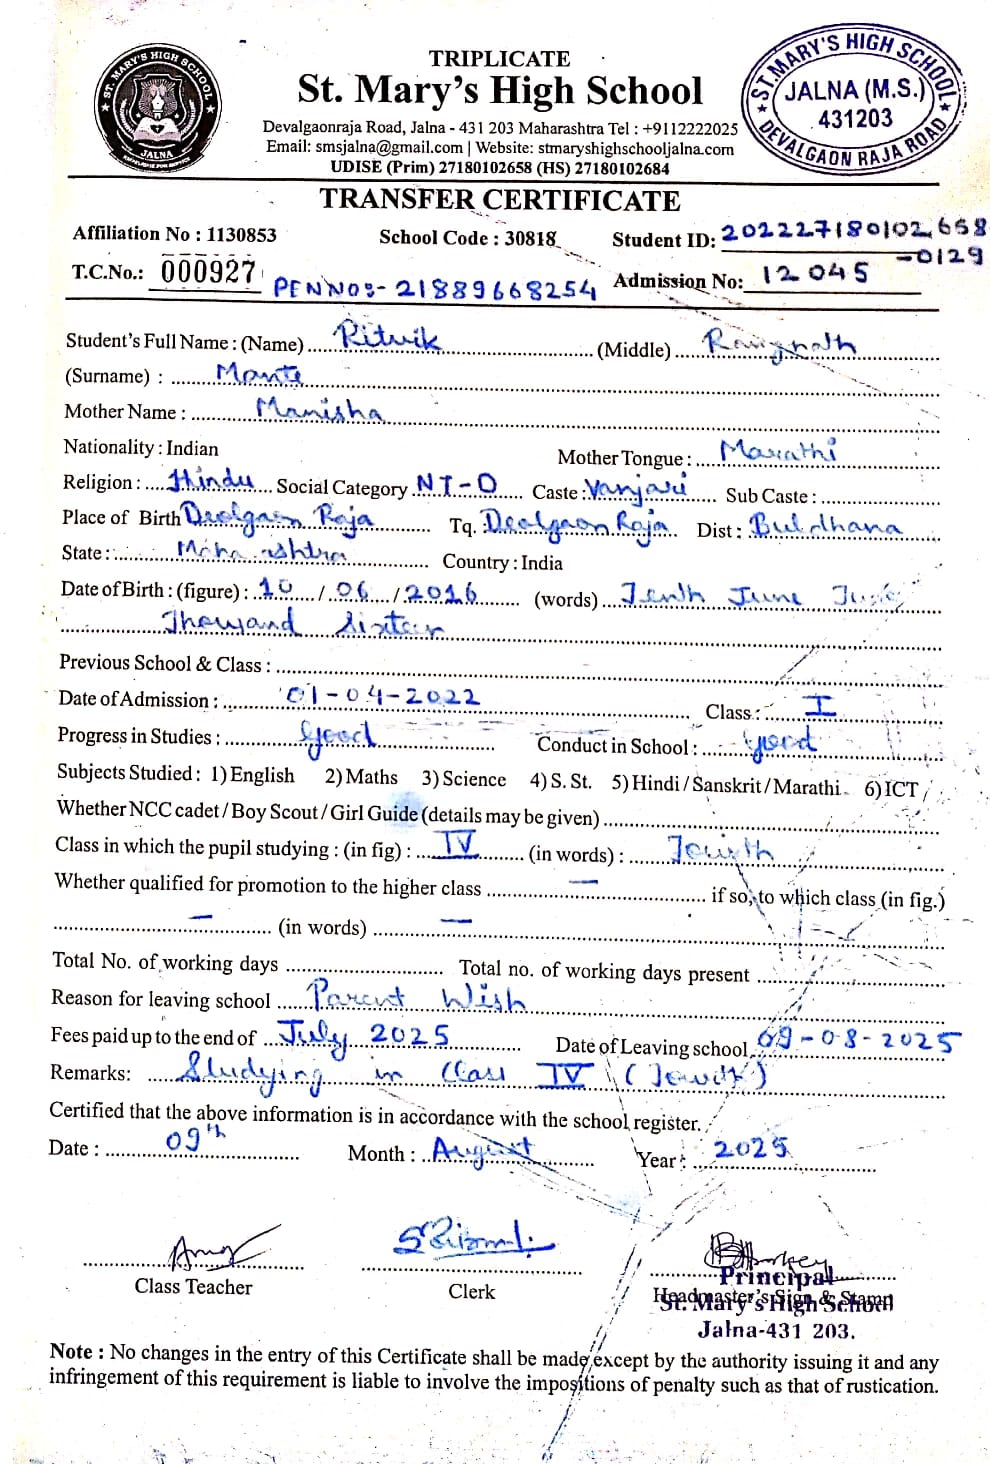 TRIPLICATE
St. Mary's High School
Devalgaonraja Road, Jalna - 431 203 Maharashtra Tel : +9112222025
Email: smsjalna@gmail.com | Website: stmaryshighschooljalna.com
UDISE (Prim) 27180102658 (HS) 27180102684
ST. MARY'S HIGH SCHOOL
JALNA
ST. MARY'S HIGH SCHOOL
JALNA (M.S.)
431203
DEVALGAON RAJA ROAD
TRANSFER CERTIFICATE
Affiliation No : 1130853 School Code : 30818 Student ID: 202227180102658
-0129
T.C.No.: 000927 PEN NO:- 21889668254 Admission No: 12045
Student's Full Name : (Name) Ritwik (Middle) Rangnath
(Surname) : Mante
Mother Name : Manisha
Nationality : Indian Mother Tongue : Marathi
Religion : Hindu Social Category NT-D Caste : Vanjari Sub Caste :
Place of Birth Deolgaon Raja Tq. Deolgaon Raja Dist : Buldhana
State : Maharashtra Country : India
Date of Birth : (figure) : 10 / 06 / 2016 (words) Tenth June
Thousand Sixteen
Previous School & Class :
Date of Admission : 01-04-2022 Class : I
Progress in Studies : Good Conduct in School : good
Subjects Studied : 1) English 2) Maths 3) Science 4) S. St. 5) Hindi / Sanskrit / Marathi 6) ICT
Whether NCC cadet / Boy Scout / Girl Guide (details may be given)
Class in which the pupil studying : (in fig) : IV (in words) : Fourth
Whether qualified for promotion to the higher class — if so, to which class (in fig.)
— (in words) —
Total No. of working days Total no. of working days present
Reason for leaving school Parent Wish
Fees paid up to the end of July 2025 Date of Leaving school 09-08-2025
Remarks: Studying in Class IV (Fourth)
Certified that the above information is in accordance with the school register.
Date : 09th Month : August Year : 2025
Class Teacher Clerk Headmaster's Sign & Stamp
Principal
St. Mary's High School
Jalna-431 203.
Note : No changes in the entry of this Certificate shall be made except by the authority issuing it and any
infringement of this requirement is liable to involve the impositions of penalty such as that of rustication.